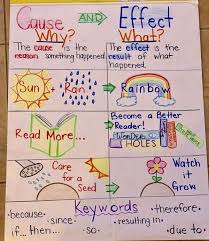 Cause AND Effect
Why? What?
The cause is the
reason something happened.
The effect is the
result of what
happened.
Sun + Rain
Rainbow
Read More...
Become a Better
Reader!
HOLES
Care
for a
Seed
Watch
it
Grow
Keywords
•because• •therefore•
since •resulting in•
if... then... •so• •due to•